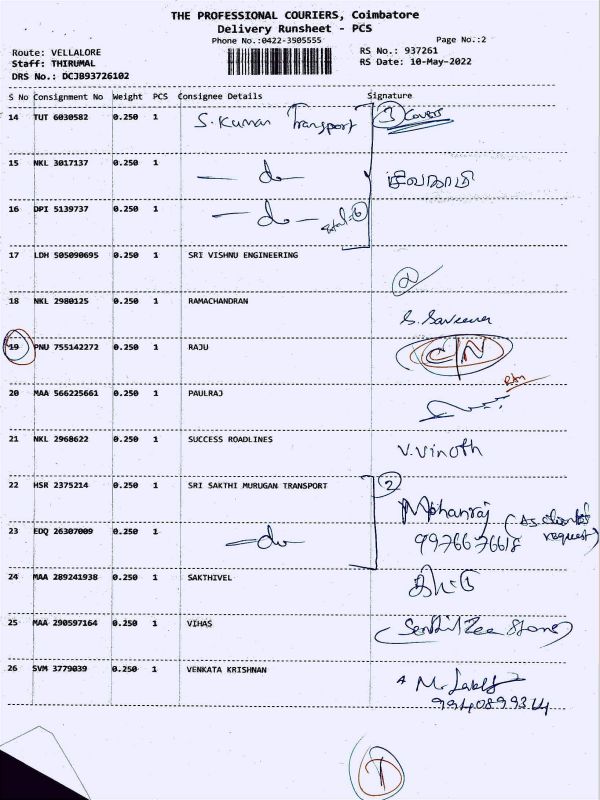 THE PROFESSIONAL COURIERS, Coimbatore
Delivery Runsheet - PCS
Phone No.:0422-3505555 Page No.:2
Route: VELLALORE RS No.: 937261
Staff: THIRUMAL RS Date: 10-May-2022
DRS No.: DCJB93726102
S No Consignment No Weight PCS Consignee Details Signature
14 TUT 6030582 0.250 1 S. Kumar Transport 3 Covers
15 NKL 3017137 0.250 1 — do — சிவகாமி
16 DPI 5139737 0.250 1 — do —
17 LDH 505090695 0.250 1 SRI VISHNU ENGINEERING
18 NKL 2980125 0.250 1 RAMACHANDRAN
19 PNU 755142272 0.250 1 RAJU C/N
20 MAA 566225661 0.250 1 PAULRAJ
21 NKL 2968622 0.250 1 SUCCESS ROADLINES V. Vinoth
22 HSR 2375214 0.250 1 SRI SAKTHI MURUGAN TRANSPORT 2
Mohanraj
23 EDQ 26307009 0.250 1 — do — 9976676618 request)
24 MAA 289241938 0.250 1 SAKTHIVEL
25 MAA 290597164 0.250 1 VIHAS
26 SVM 3779039 0.250 1 VENKATA KRISHNAN
9940899314